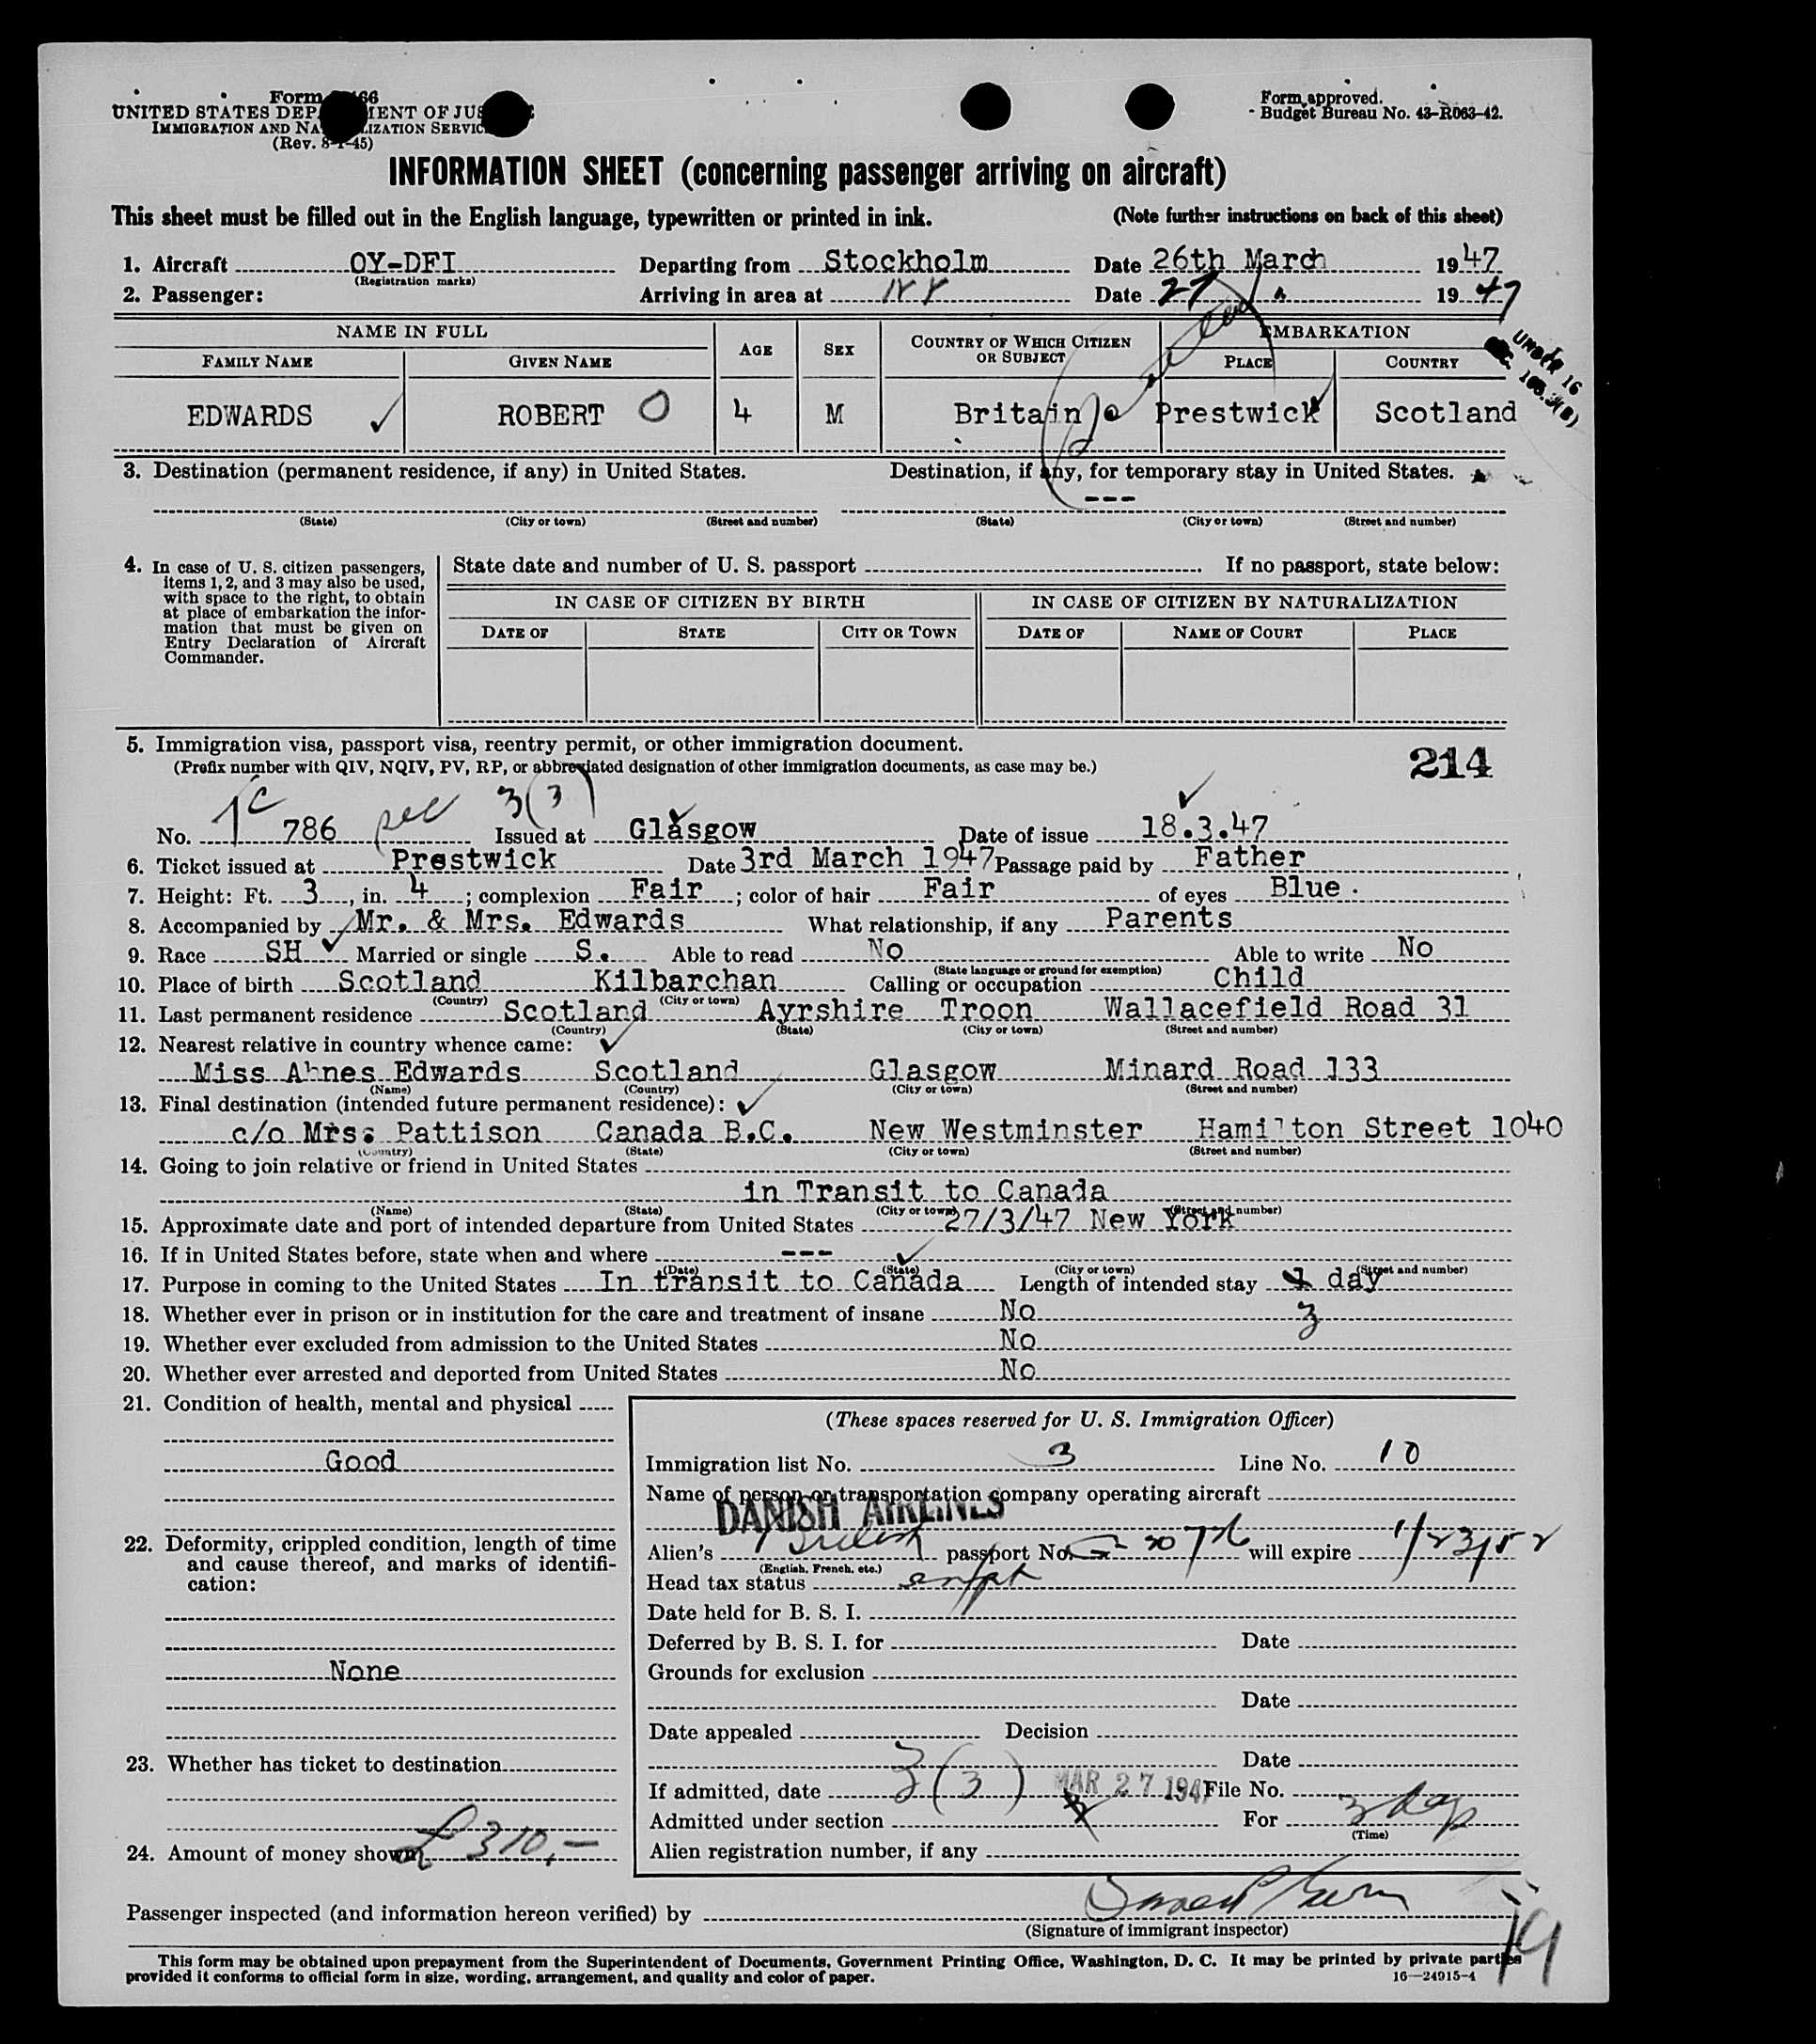 Form 66
UNITED STATES DEP MENT OF JUS E
IMMIGRATION AND NA LIZATION SERVIC
(Rev. 8-1-45)
Form approved.
Budget Bureau No. 43-R063-42.
INFORMATION SHEET (concerning passenger arriving on aircraft)
This sheet must be filled out in the English language, typewritten or printed in ink. (Note further instructions on back of this sheet)
1. Aircraft OY-DFI Departing from Stockholm Date 26th March 1947
(Registration marks)
2. Passenger: Arriving in area at Date 27 1947
NAME IN FULL AGE SEX COUNTRY OF WHICH CITIZEN OR SUBJECT EMBARKATION
FAMILY NAME GIVEN NAME PLACE COUNTRY
UNDER 16
EDWARDS ROBERT O 4 M Britain Prestwick Scotland
3. Destination (permanent residence, if any) in United States. Destination, if any, for temporary stay in United States.
---
(State) (City or town) (Street and number) (State) (City or town) (Street and number)
4. In case of U. S. citizen passengers, items 1, 2, and 3 may also be used, with space to the right, to obtain at place of embarkation the information that must be given on Entry Declaration of Aircraft Commander.
State date and number of U. S. passport If no passport, state below:
IN CASE OF CITIZEN BY BIRTH IN CASE OF CITIZEN BY NATURALIZATION
DATE OF STATE CITY OR TOWN DATE OF NAME OF COURT PLACE
5. Immigration visa, passport visa, reentry permit, or other immigration document.
(Prefix number with QIV, NQIV, PV, RP, or abbreviated designation of other immigration documents, as case may be.)
214
3(3)
No. 786 Issued at Glasgow Date of issue 18.3.47
6. Ticket issued at Prestwick Date 3rd March 1947 Passage paid by Father
7. Height: Ft. 3, in. 4; complexion Fair; color of hair Fair of eyes Blue.
8. Accompanied by Mr. & Mrs. Edwards What relationship, if any Parents
9. Race SH Married or single S. Able to read No Able to write No
(State language or ground for exemption)
10. Place of birth Scotland Kilbarchan Calling or occupation Child
(Country) (City or town)
11. Last permanent residence Scotland Ayrshire Troon Wallacefield Road 31
(Country) (State) (City or town) (Street and number)
12. Nearest relative in country whence came:
Miss Edwards Scotland Glasgow Minard Road 133
(Name) (Country) (City or town) (Street and number)
13. Final destination (intended future permanent residence):
c/o Mrs: Pattison Canada B.C. New Westminster Hamilton Street 1040
(Country) (State) (City or town) (Street and number)
14. Going to join relative or friend in United States
in Transit to Canada
(Name) (State) (City or town) (Street and number)
15. Approximate date and port of intended departure from United States 27/3/47 New York
16. If in United States before, state when and where ---
(Date) (State) (City or town) (Street and number)
17. Purpose in coming to the United States In transit to Canada Length of intended stay 1 day
3
18. Whether ever in prison or in institution for the care and treatment of insane No
19. Whether ever excluded from admission to the United States No
20. Whether ever arrested and deported from United States No
21. Condition of health, mental and physical
Good
22. Deformity, crippled condition, length of time and cause thereof, and marks of identification:
None
23. Whether has ticket to destination
24. Amount of money shown £310,-
(These spaces reserved for U. S. Immigration Officer)
Immigration list No. 3 Line No. 10
Name of person or transportation company operating aircraft
DANISH AIRLINES
Alien's British passport No. will expire 1/23/52
(English, French, etc.)
Head tax status
Date held for B. S. I.
Deferred by B. S. I. for Date
Grounds for exclusion
Date
Date appealed Decision
Date
If admitted, date 3(3) MAR 27 1947 File No.
Admitted under section For 3 days
(Time)
Alien registration number, if any
Passenger inspected (and information hereon verified) by
(Signature of immigrant inspector)
19
This form may be obtained upon prepayment from the Superintendent of Documents, Government Printing Office, Washington, D. C. It may be printed by private parties
provided it conforms to official form in size, wording, arrangement, and quality and color of paper. 16—24915-4